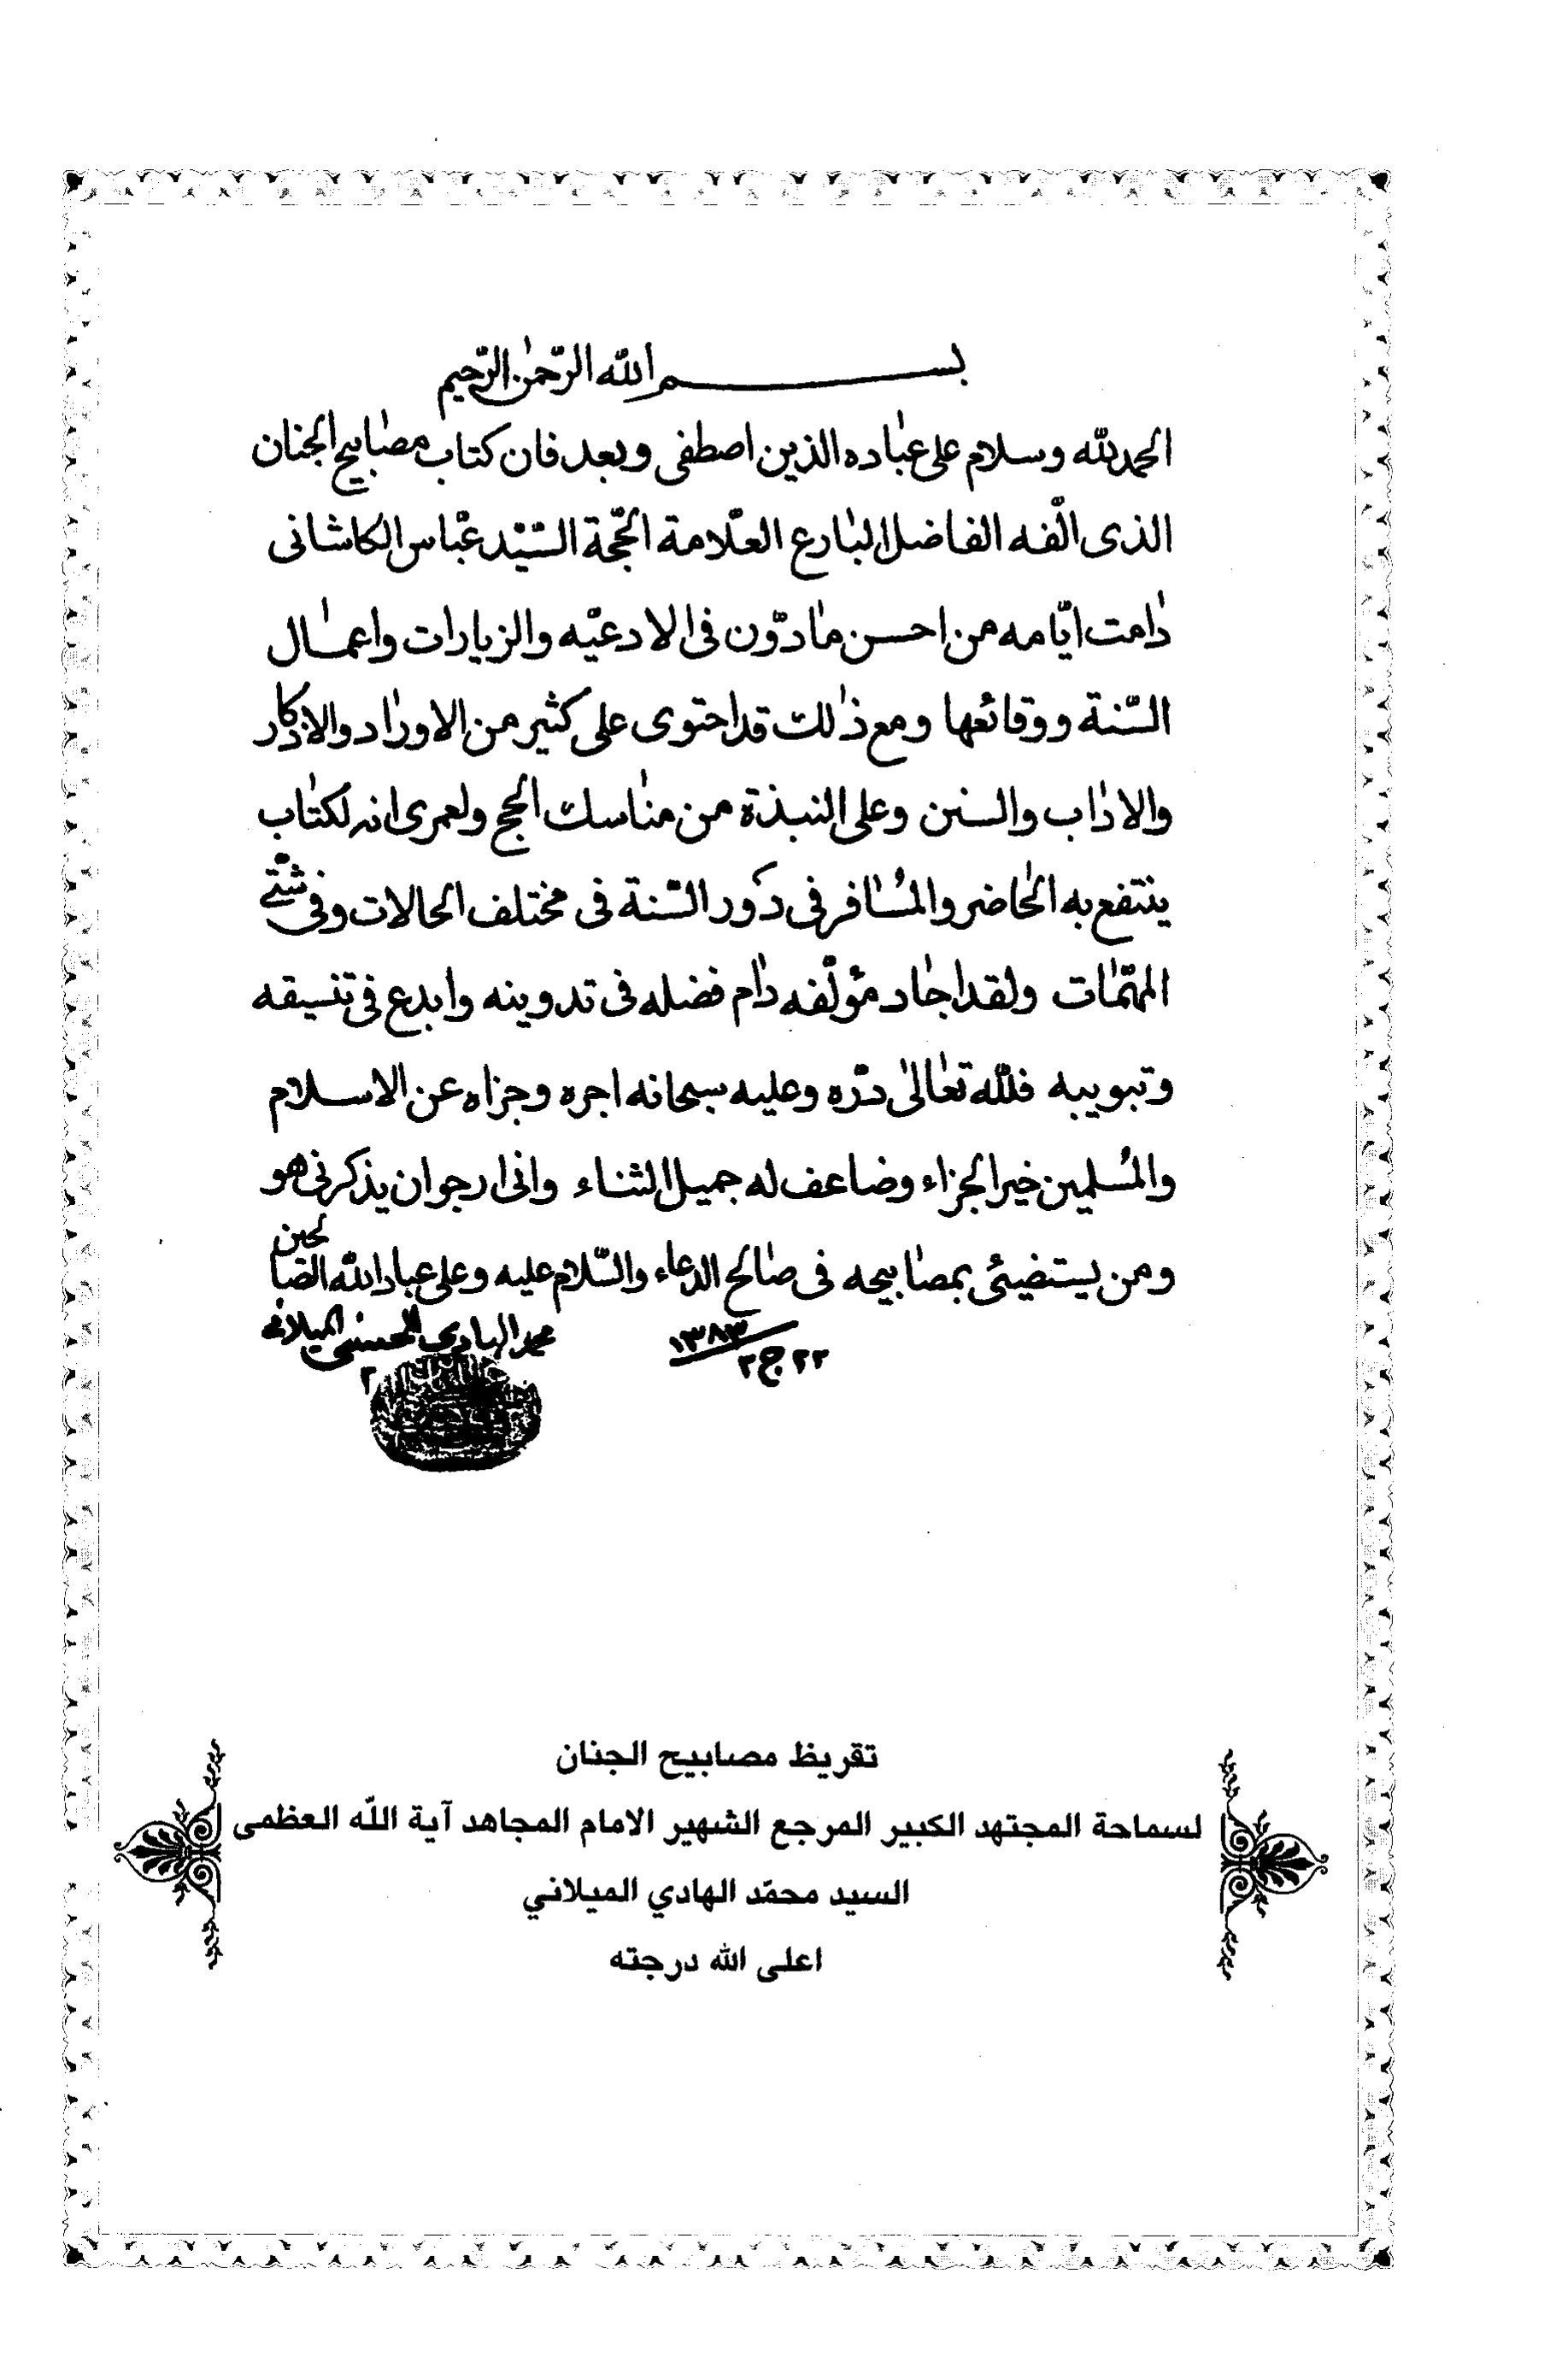 بسم الله الرّحمٰن الرّحيم
الحمد لله وسلام على عبٰاده الذين اصطفى وبعد فان كتاب مصٰابيح الجنان
الذى الّفه الفاضل البٰارع العلّامة الحجّة السّيّد عبّاس الكاشانى
دٰامت ايّامه من احسن مٰا دوّن فى الادعيّه والزيارات واعمٰال
السّنة ووقائعها ومع ذٰلك قد احتوى على كثير من الاورٰاد والاذكار
والادٰاب والسنن وعلى النبذة من منٰاسك الحج ولعمرى انه لكتٰاب
ينتفع به الحٰاضر والمُسٰافر فى دَور السّنة فى مختلف الحالات وفى شتّى
المهمّات ولقد اجٰاد مؤلّفه دٰام فضله فى تدوينه وابدع فى تنسيقه
وتبويبه فللّه تعٰالىٰ درّه وعليه سبحانه اجره وجزاه عن الاسلام
والمُسلمين خير الجزاء وضاعف له جميل الثناء وانى ارجو ان يذكرنى هو
ومن يستضيئ بمصٰابيحه فى صٰالح الدعاء والسّلام عليه وعلى عباد الله الصٰالحين
محمد الهادي الحسيني الميلاني
٢٢ ج ٢ ١٣٨٣
تقريظ مصابيح الجنان
لسماحة المجتهد الكبير المرجع الشهير الامام المجاهد آية اللّه العظمى
السيد محمّد الهادي الميلاني
اعلى الله درجته